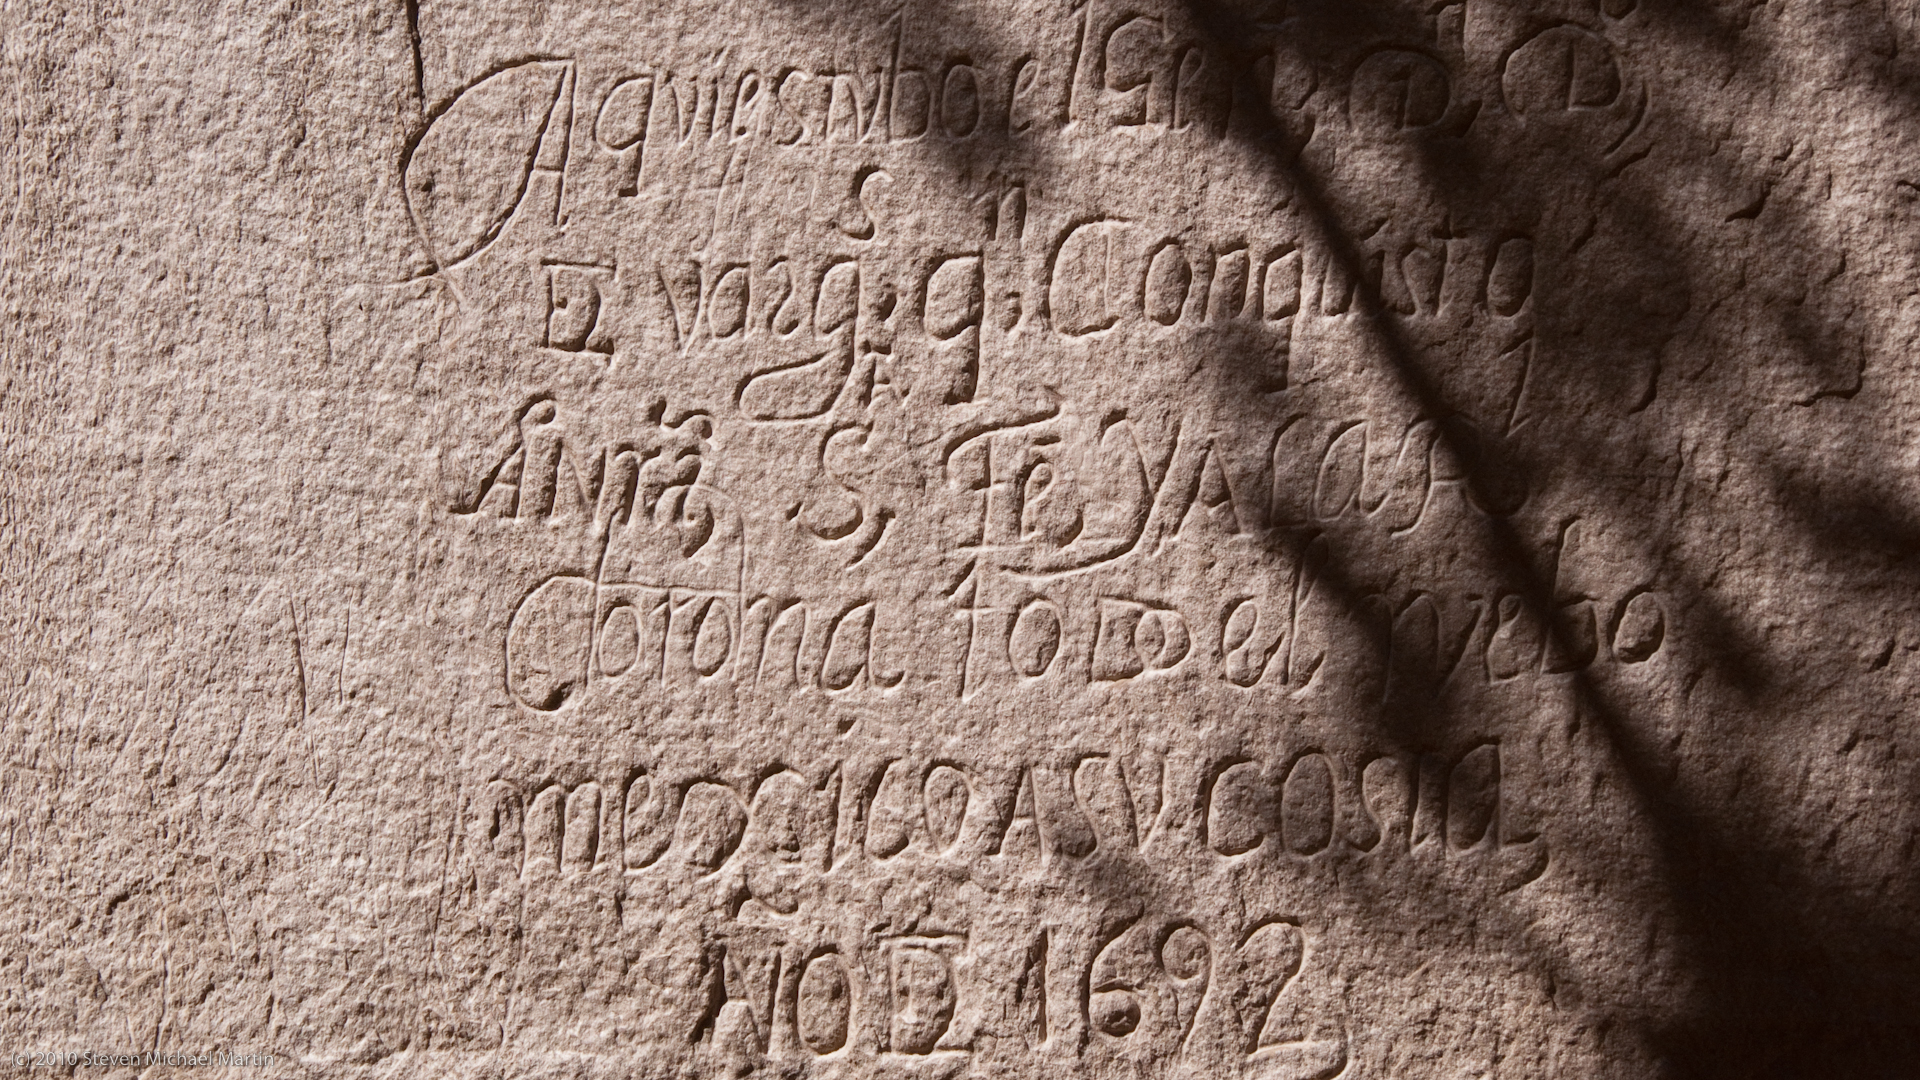 Aqui estubo el Genl Dn Do
DE vargs qn Conquisto
A nra Sta Fe Y A la Rl
Corona todo el nuebo
mexico A su costa
AÑO DE 1692
(c) 2010 Steven Michael Martin